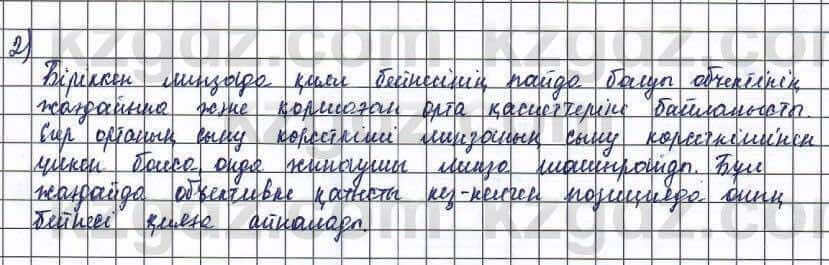 2)
Біріккен линзада қиял бейнесінің пайда болуы объектінің
жағдайына және қоршаған орта қасиеттеріне байланысты.
Егер ортаның сыну көрсеткіші линзаның сыну көрсеткішінен
үлкен болса онда жинаушы линза шашырайды. Бұл
жағдайда объективке қатысты кез-келген позицияда оның
бейнесі қиялға айналады.
kzgdz.com